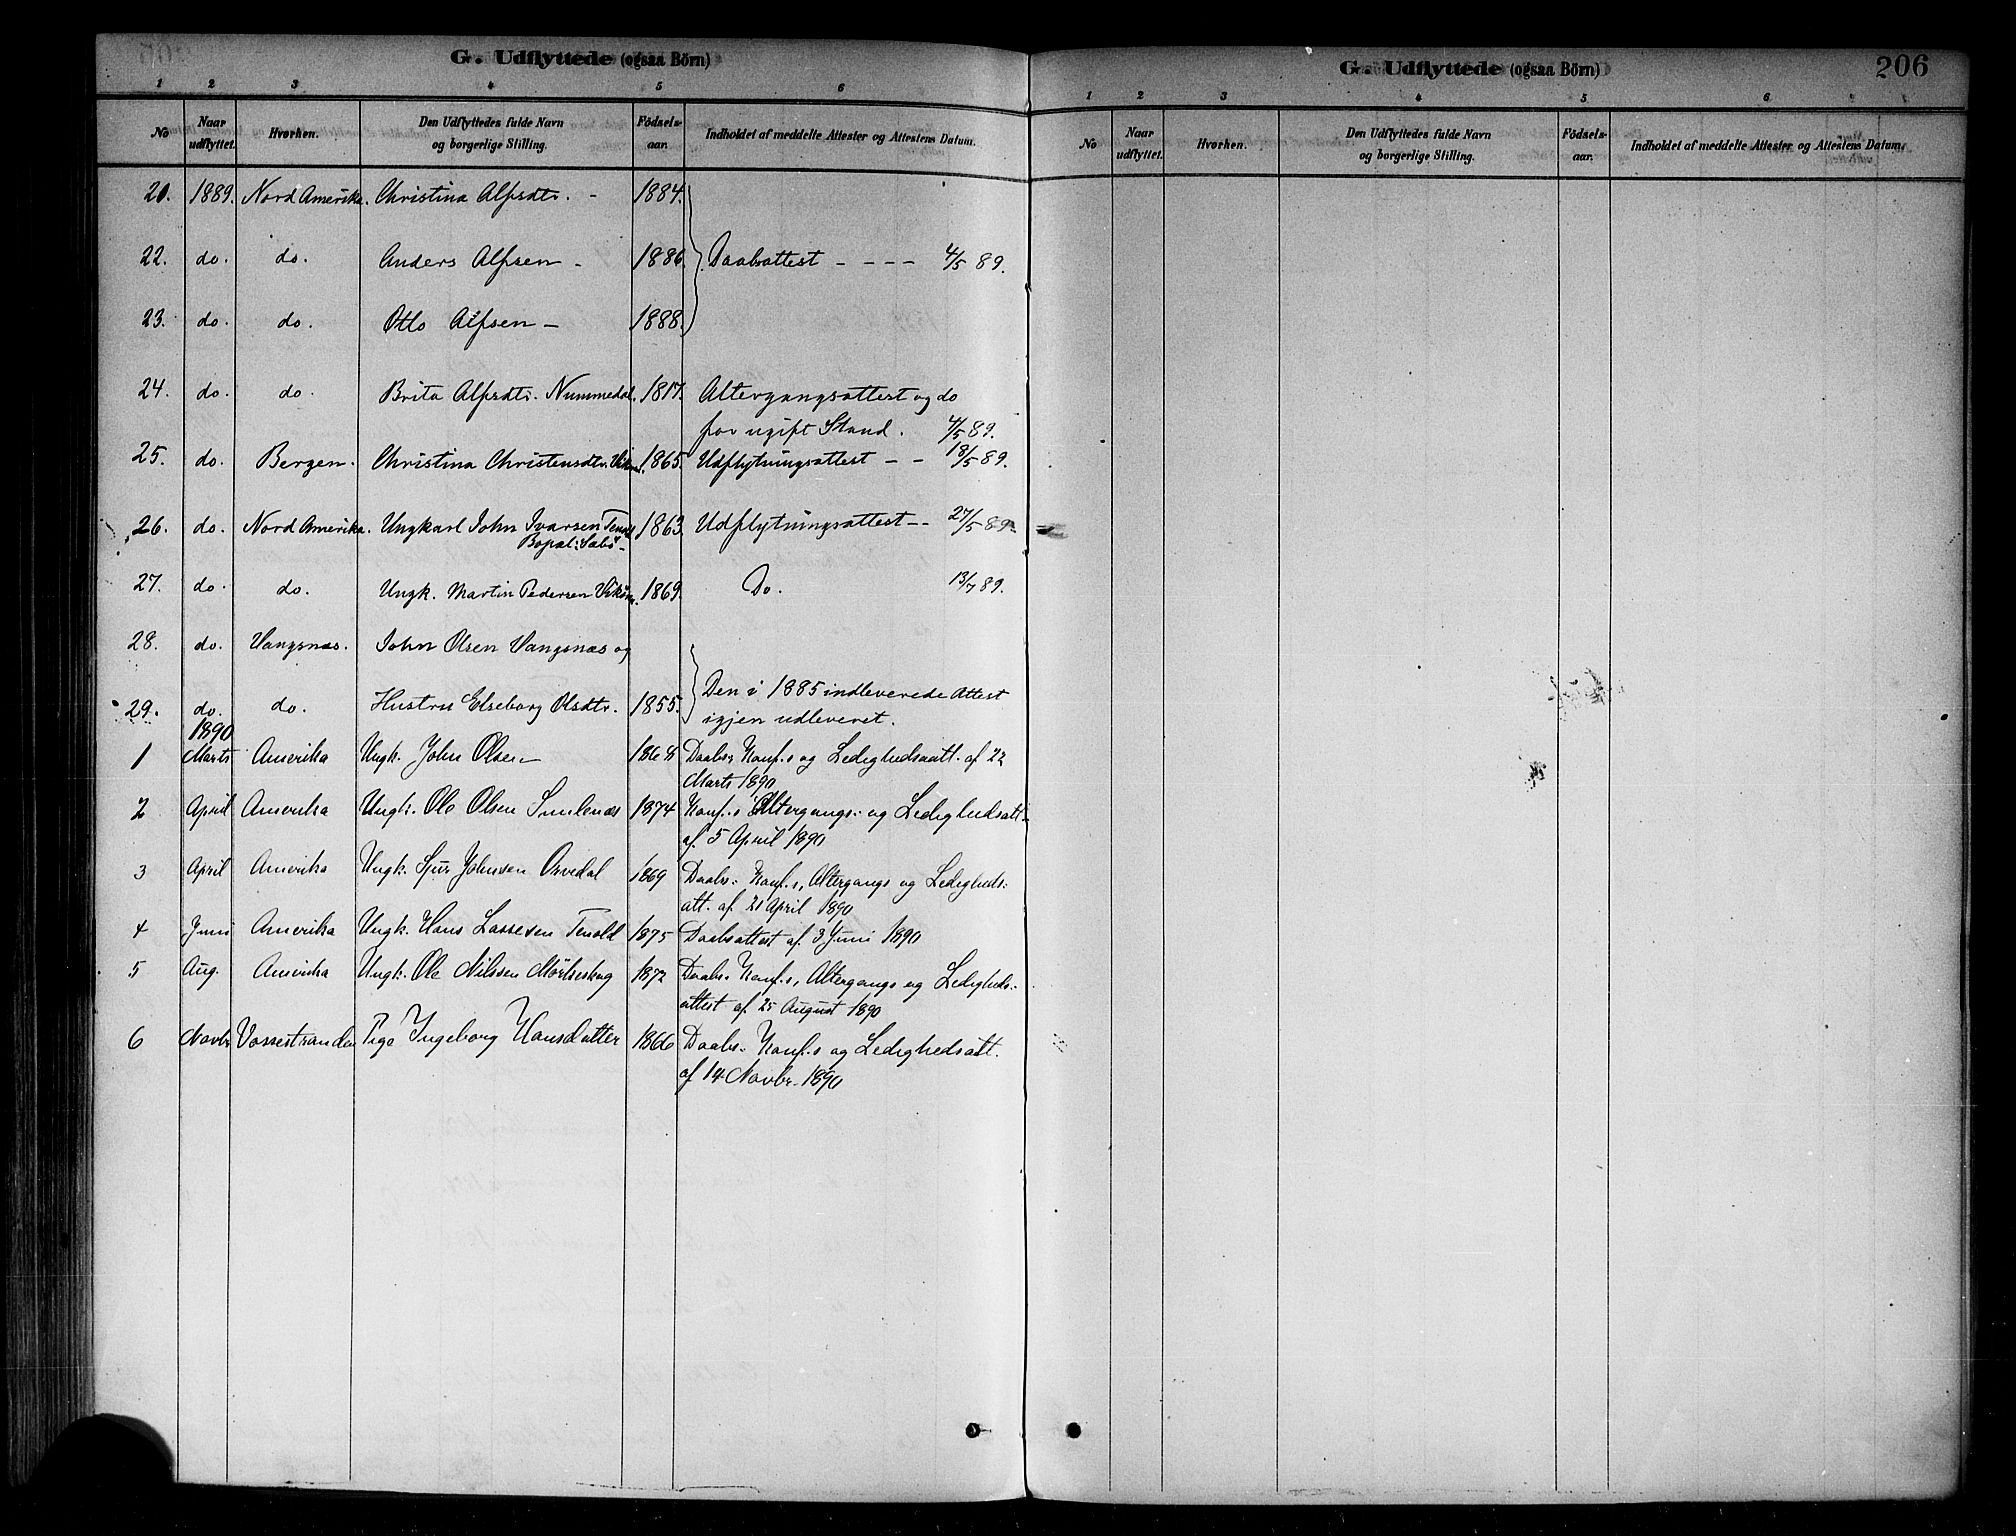 G. Udflyttede (ogsaa Börn)
1 2 3 4 5 6
No Naar udflyttet. Hvorhen. Den Udflyttedes fulde Navn og borgerlige Stilling. Födsels-aar. Indholdet af meddelte Attester og Attestens Datum.
21. 1889. Nord Amerika. Christina Alfsdtr. - 1884.
22. do. do. Anders Alfsen - 1886. Daabsattest - - - - 4/5 89.
23. do. do. Otto Alfsen - 1888.
24. do. do. Brita Alfsdtr. Nummedal. 1817. Altergangsattest og do
for ugift Stand. 4/5 89.
25. do. Bergen. Christina Christensdtr. 1865. Udflytningsattest - - 18/5 89.
26. do. Nord Amerika. Ungkarl John Ivarsen 1863. Udflytningsattest - - 27/5 89.
Bopæl: Sæbö -
27. do. do. Ungk. Martin Pedersen 1869. Do. 13/7 89.
28. do. Vangsnæs. John Olsen Vangsnæs og
29. do. do. Hustru Elseborg Olsdtr. 1855. Den i 1885 indleverede Attest
igjen udleveret.
1890
1 Marts Amerika Ungk. John Olsen 1868 Daabs- Konf.s og Ledighedsatt. af 22
Marts 1890
2 April Amerika Ungk. Ole Olsen 1874 Konf.s Altergangs- og Ledighedsatt.
af 5 April 1890
3 April Amerika Ungk. Sjur Johnsen 1869 Daabs- Konf.s, Altergangs og Ledigheds-
att. af 21 April 1890
4 Juni Amerika Ungk. Hans Lassesen Tenold 1875 Daabsattest af 3 Juni 1890
5 Aug. Amerika Ungk. Ole Nilssen 1872 Daabs- Konf.s, Altergangs og Ledigheds-
attest af 25 August 1890
6 Novbr Vossestranden Pige Ingeborg Hansdatter 1866 Daabs- Konf.s og Ledighedsatt.
af 14 Novbr. 1890
G. Udflyttede (ogsaa Börn) 206
1 2 3 4 5 6
No Naar udflyttet. Hvorhen. Den Udflyttedes fulde Navn og borgerlige Stilling. Födsels-aar. Indholdet af meddelte Attester og Attestens Datum.